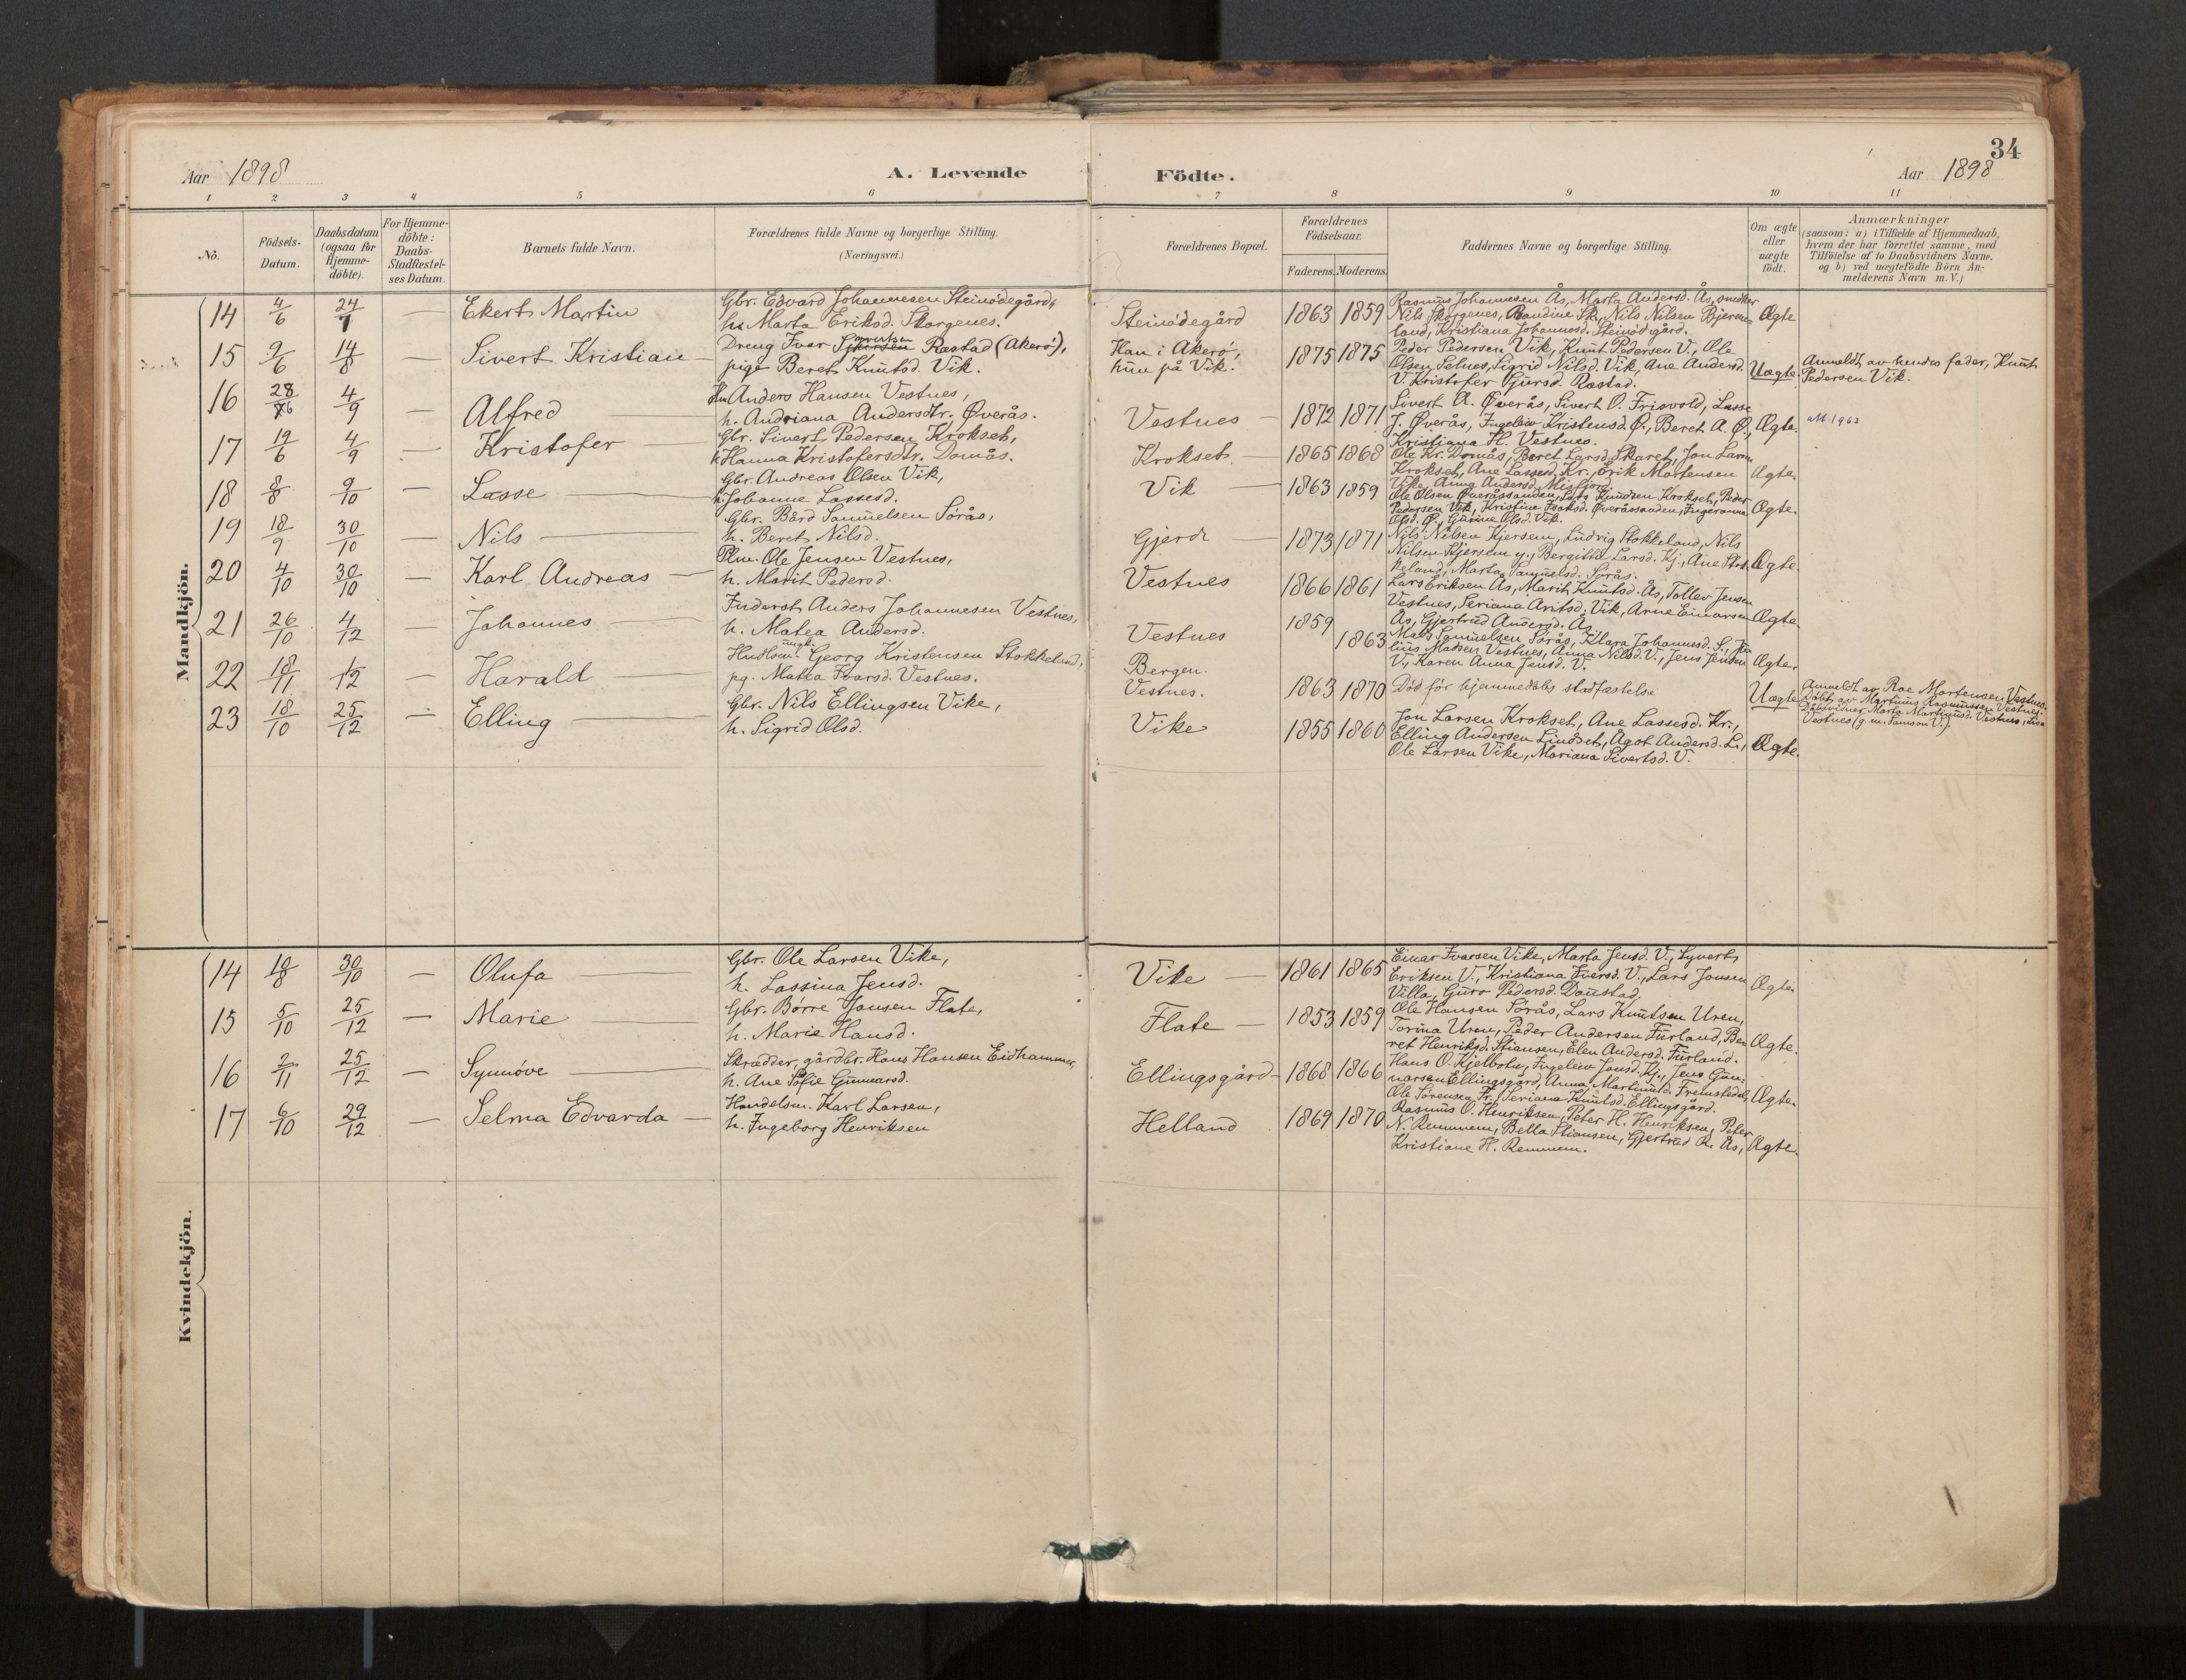 34
Aar 1898
A. Levende Födte.
Aar 1898
1 2 3 4 5 6 7 8 9 10 11
No.
Födsels-Datum.
Daabsdatum (ogsaa for Hjemme-döbte).
For Hjemme-döbte: Daabs-Stadfæstel-ses Datum.
Barnets fulde Navn.
Forældrenes fulde Navne og borgerlige Stilling.
(Næringsvei.)
Forældrenes Bopæl.
Forældrenes Födselsaar.
Faderens. Moderens.
Faddernes Navne og borgerlige Stilling.
Om ægte eller uægte födt.
Anmærkninger
(saasom: a) i Tilfælde af Hjemmedaab,
hvem der har forrettet samme, med
Tilföielse af to Daabsvidners Navne.
og b) ved uægtefödte Börn An-
melderens Navn m.V.)
Mandkjön.
14 4/6 24/7 — Ekert Martin
Gbr. Edvard Johannesen Steinødegård,
h. Marta Eriksd. Skorgenes.
Steinødegård 1863 1859
Rasmus Johannesen Ås, Marta Andersd. Ås, snedker
Nils Skorgenes, Randine Sk., Nils Nilsen Bjerme-
land, Kristiana Johannesd. Steinødgård.
Ægte
15 9/6 14/8 — Sivert Kristian —
Dreng Ivar Rastad (Akerö),
pige Beret Knutsd. Vik.
Han i Akerö,
hun på Vik.
1875 1875
Peder Pedersen Vik, Knut Pedersen V., Ole
Olsen Selnes, Sigrid Nilsd. Vik, Ane Andersd.
V. Kristofer Gjursd. Rastad.
Uægte.
Anmeldt av hendes fader, Knut
Pedersen Vik.
16 28/6 4/9 — Alfred —
Anders Hansen Vestnes,
h. Andriana Andersdtr. Øverås.
Vestnes — 1872 1871
Sivert A. Øverås, Sivert O. Frisvold, Lasse
J. Øverås, Ingeleiv Kristensd. Ø., Beret A. Ø.,
Kristiana H. Vestnes.
Ægte.
1963
17 19/6 4/9 — Kristofer —
Gbr. Sivert Pedersen Krokset,
h. Hanna Kristofersdtr. Domås.
Krokset — 1865 1868
Ole Kr. Domås, Beret Larsd. Skaret, Jon Larsen
Krokset, Ane Lassesd. Kr., Erik Mortensen
Vike, Anna Andersd. Misfjord.
Ægte.
18 8/8 9/10 — Lasse —
Gbr. Andreas Olsen Vik,
h. Johanne Lassesd.
Vik — 1863 1859
Ole Olsen Øveråssanden, Lars Knudsen Krokset, Peder
Pedersen Vik, Kristine Isaksd. Øveråssanden, Ingeranna
Olsd. Ø., Gurine Olsd. Vik.
Ægte.
19 18/9 30/10 — Nils —
Gbr. Bård Samuelsen Sörås,
h. Beret Nilsd.
Gjerdr — 1873 1871
Nils Nilsen Kjersem, Ludvig Stokkeland, Nils
Nilsen Kjersem y., Bergitta Larsd. Kj., Ane Stok-
keland, Marta Samuelsd. Sörås.
Ægte.
20 4/10 30/10 — Karl Andreas —
Plm. Ole Jensen Vestnes,
h. Marit Pedersd.
Vestnes 1866 1861
Lars Eriksen Ås, Marit Knutsd. Ås, Tollev Jensen
Vestnes, Seriana Aritsd. Vik, Arne Einarsen
Ås, Gjertrud Andersd. Ås
Ægte.
21 26/10 4/12 — Johannes —
Inderst Anders Johannesen Vestnes,
h. Matea Andersd.
Vestnes 1859 1863
Mats Samuelsen Sörås, Klara Johannesd. S., Ju-
lius Madsen Vestnes, Anna Nilsd. V., Jens Jensen
V., Karen Anna Jensd. V.
Ægte.
22 18/11 1/12 — Harald —
ungk.
Hndlsm. Georg Kristensen Stokkeland,
pg. Matea Ivarsd. Vestnes.
Bergen.
Vestnes.
1863 1870 Död för hjemmedåbs stadfæstelse Uægte.
Anmeldt av Roe Mortensen Vestnes.
Döbt av Martinus Rasmussen Vestnes.
Dåbsvidner Marta Martinusd. Vestnes, Lisa
Vestnes (g. m. Samson V.)
23 18/10 25/12 — Elling —
Gbr. Nils Ellingsen Vike,
h. Sigrid Olsd.
Vike 1855 1860
Jon Larsen Krokset, Ane Lassesd. Kr.,
Elling Andersen Lindset, Agot Andersd. L.,
Ole Larsen Vike, Mariana Sivertsd. V.
Ægte.
Kvindekjön.
14 10/8 30/10 — Olufa —
Gbr. Ole Larsen Vike,
h. Lassina Jensd.
Vike — 1861 1865
Einar Ivarsen Vike, Marta Jensd. V., Syvert
Eriksen V., Kristiana Iversd. V., Lars Jonsen
Villa, Guro Pedersd. Daustad.
Ægte
15 5/10 25/12 — Marie —
Gbr. Börre Jonsen Flate,
h. Marie Hansd.
Flate — 1853 1859
Ole Hansen Sörås, Lars Knutsen Uren,
Torina Uren, Peder Andersen Furland, Be-
ret Henriksd. Stiansen, Elen Andersd. Furland.
Ægte.
16 2/11 25/12 — Synnöve —
Skrædder, gårdbr. Hans Hansen Eidhammer,
h. Ane Sofie Gunnarsd.
Ellingsgård — 1868 1866
Hans O. Kjelbotn, Ingeleiv Jensd. Kj., Jens Gun-
narsen Ellingsgård, Anna Martinusd. Fremstedal,
Ole Sörensen Fr., Seriana Knutsd. Ellingsgård.
Ægte.
17 6/10 29/12 — Selma Edvarda —
Handelsm. Karl Larsen,
h. Ingeborg Henriksen
Helland 1869 1870
Rasmus O. Henriksen, Peter H. Henriksen, Peter
N. Remmem, Bella Stiansen, Gjertrud R. Ås,
Kristiane H. Remmem.
Ægte.